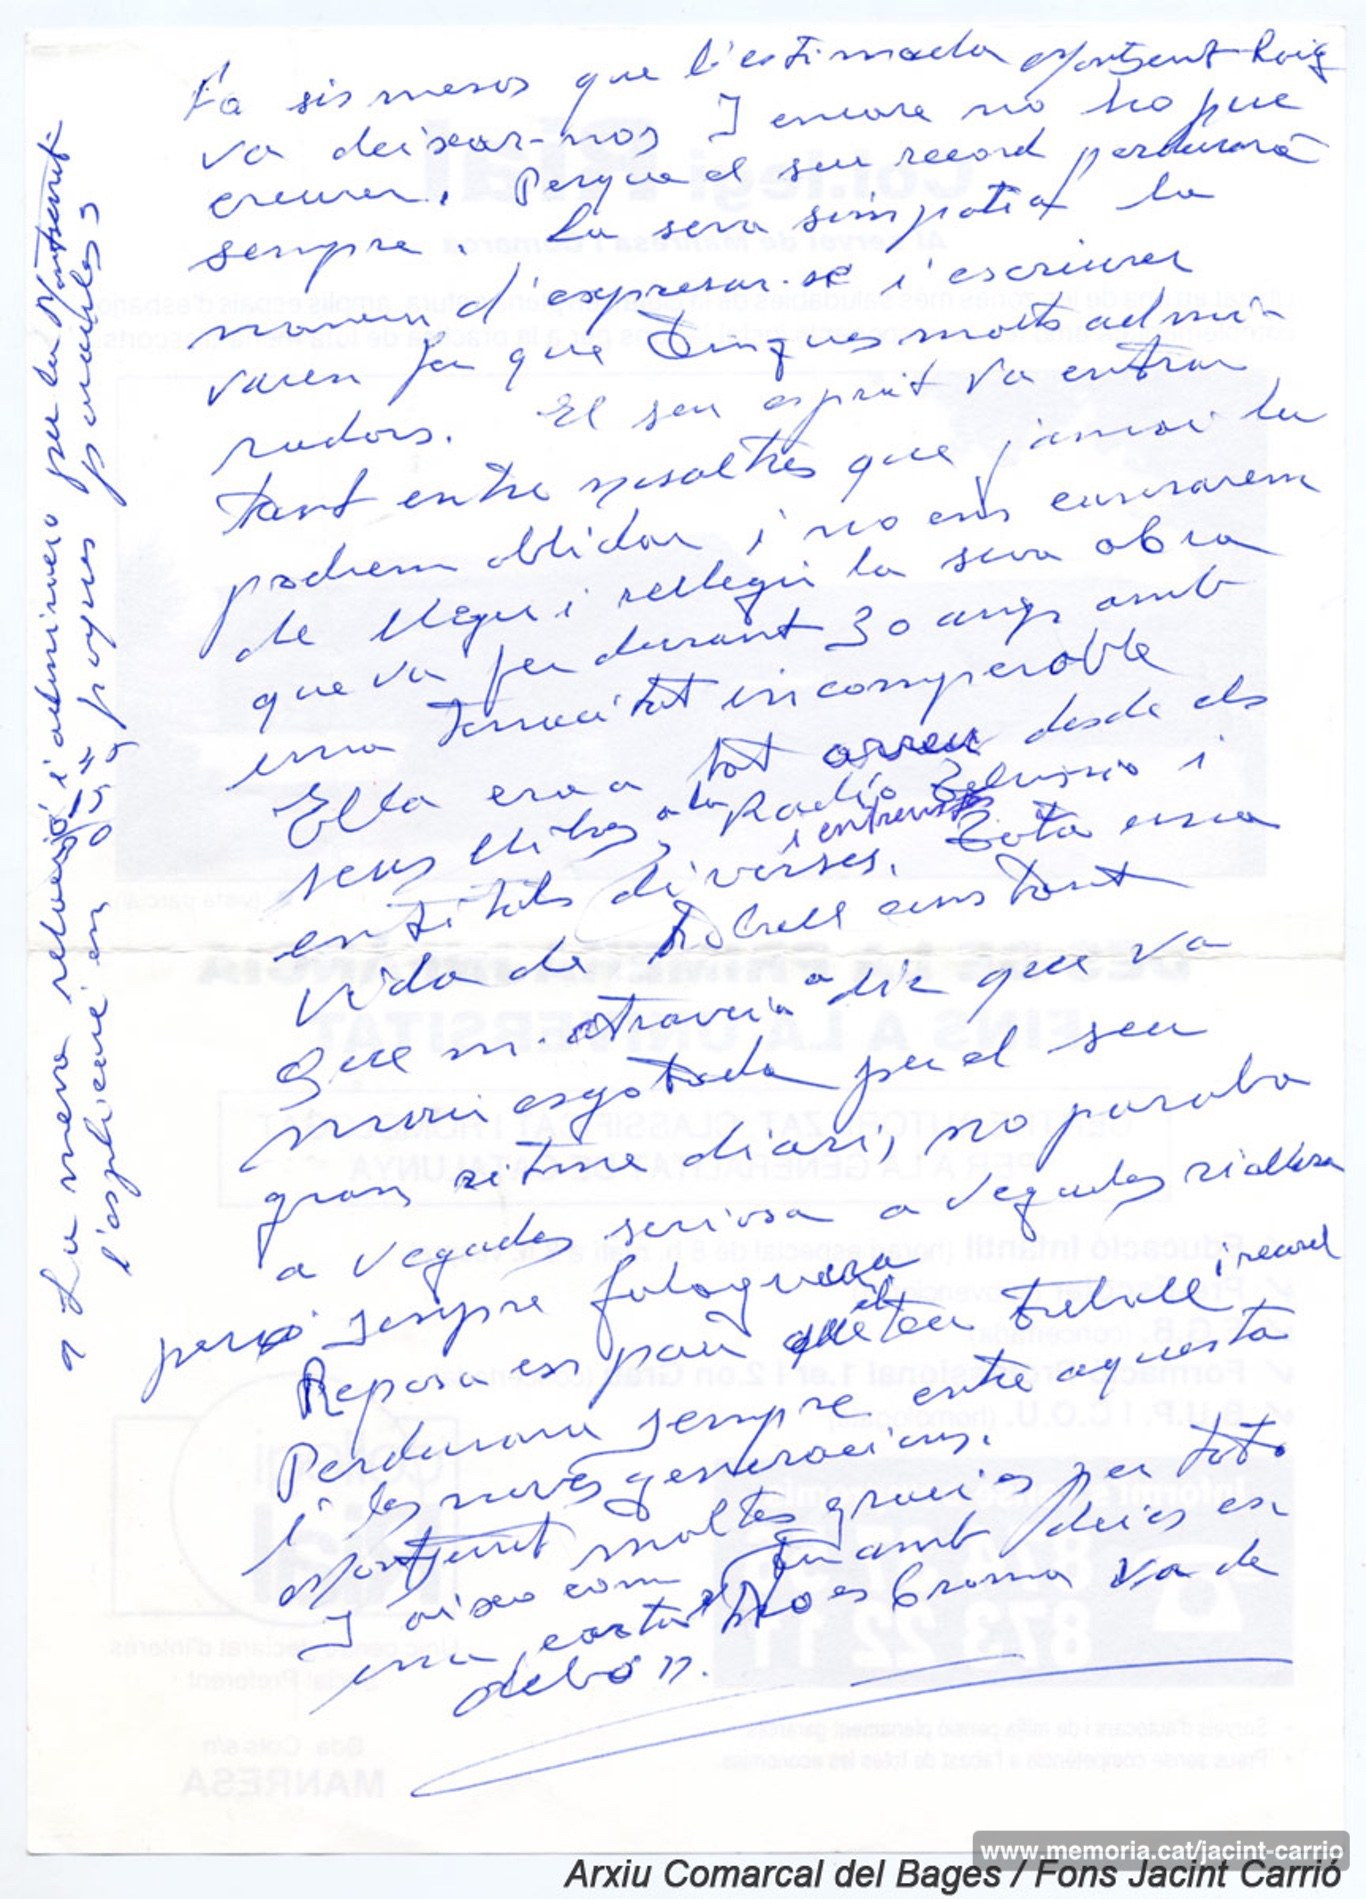 Fa sis mesos que l'estimada Montserrat Roig
va deixar-nos I encare no ho puc
creurer. Perque el seu record perdurarà
sempre. La seva simpatia la
manera d'expresar-se i escriurer
varen fer que tingues molts admi-
radors. El seu esprit va entrar
tant entre nosaltres que jamai la
podrem oblidar i no ens cansarem
de llegir i rellegir la seva obra
que va fer durant 30 anys amb
una tenacitat incomperable
Ella era a tot arreu desde els
seus llibres, a la Radio Televissio i
entitats diverses. i entrevistes Tota una
vida de treball constant
Que m'atraviria a dir que va
morir esgotada per el seu
gran ritme diari, no paraba
a vegades seriosa a vegades riallera
però sempre falaguera
Reposa en pau el teu treball i record
Perdurara sempre entre aquesta
i les noves generacions.
Montserrat moltes gracies per tot.
I aixo com tu amb deies en
una carta "No es broma va de
debó".
La meva relació i admiració per la Montserrat
l'esplicaré en poques paraules
www.memoria.cat/jacint-carrio
Arxiu Comarcal del Bages / Fons Jacint Carrió